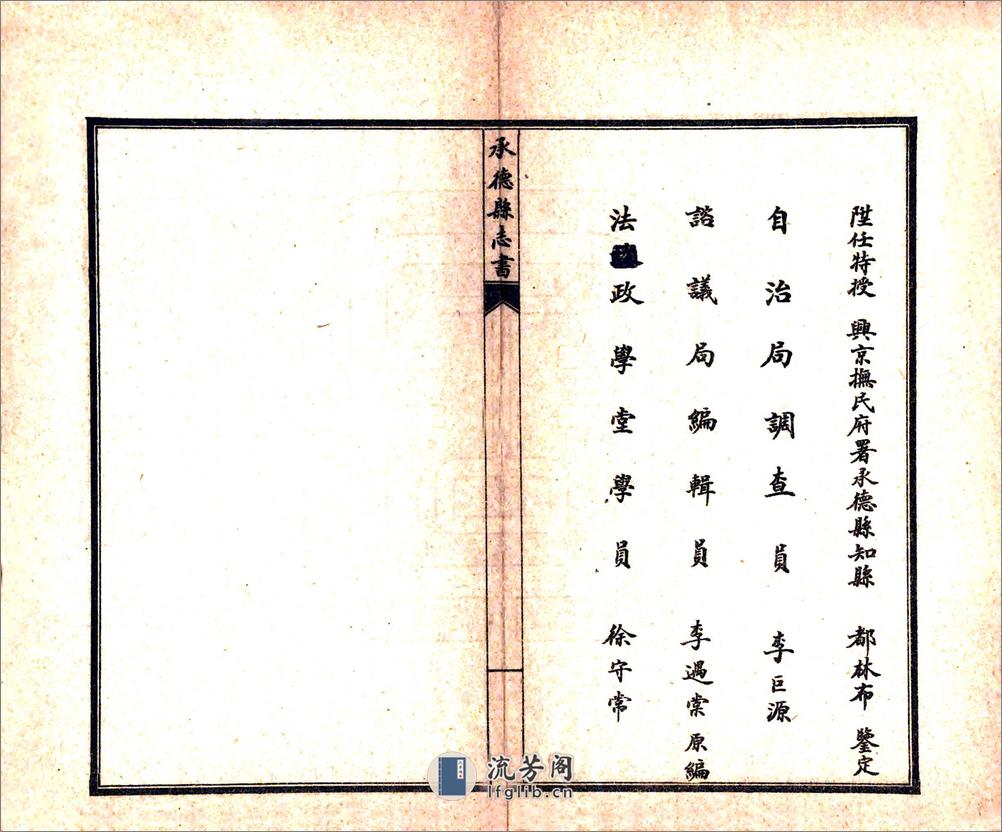 陞任特授 興京撫民府署承德縣知縣 都林布 鑒定
自治局調查員 李巨源
諮議局編輯員 李遇棠 原編
法政學堂學員 徐守常
承德縣志書
流芳阁
lfglib.cn